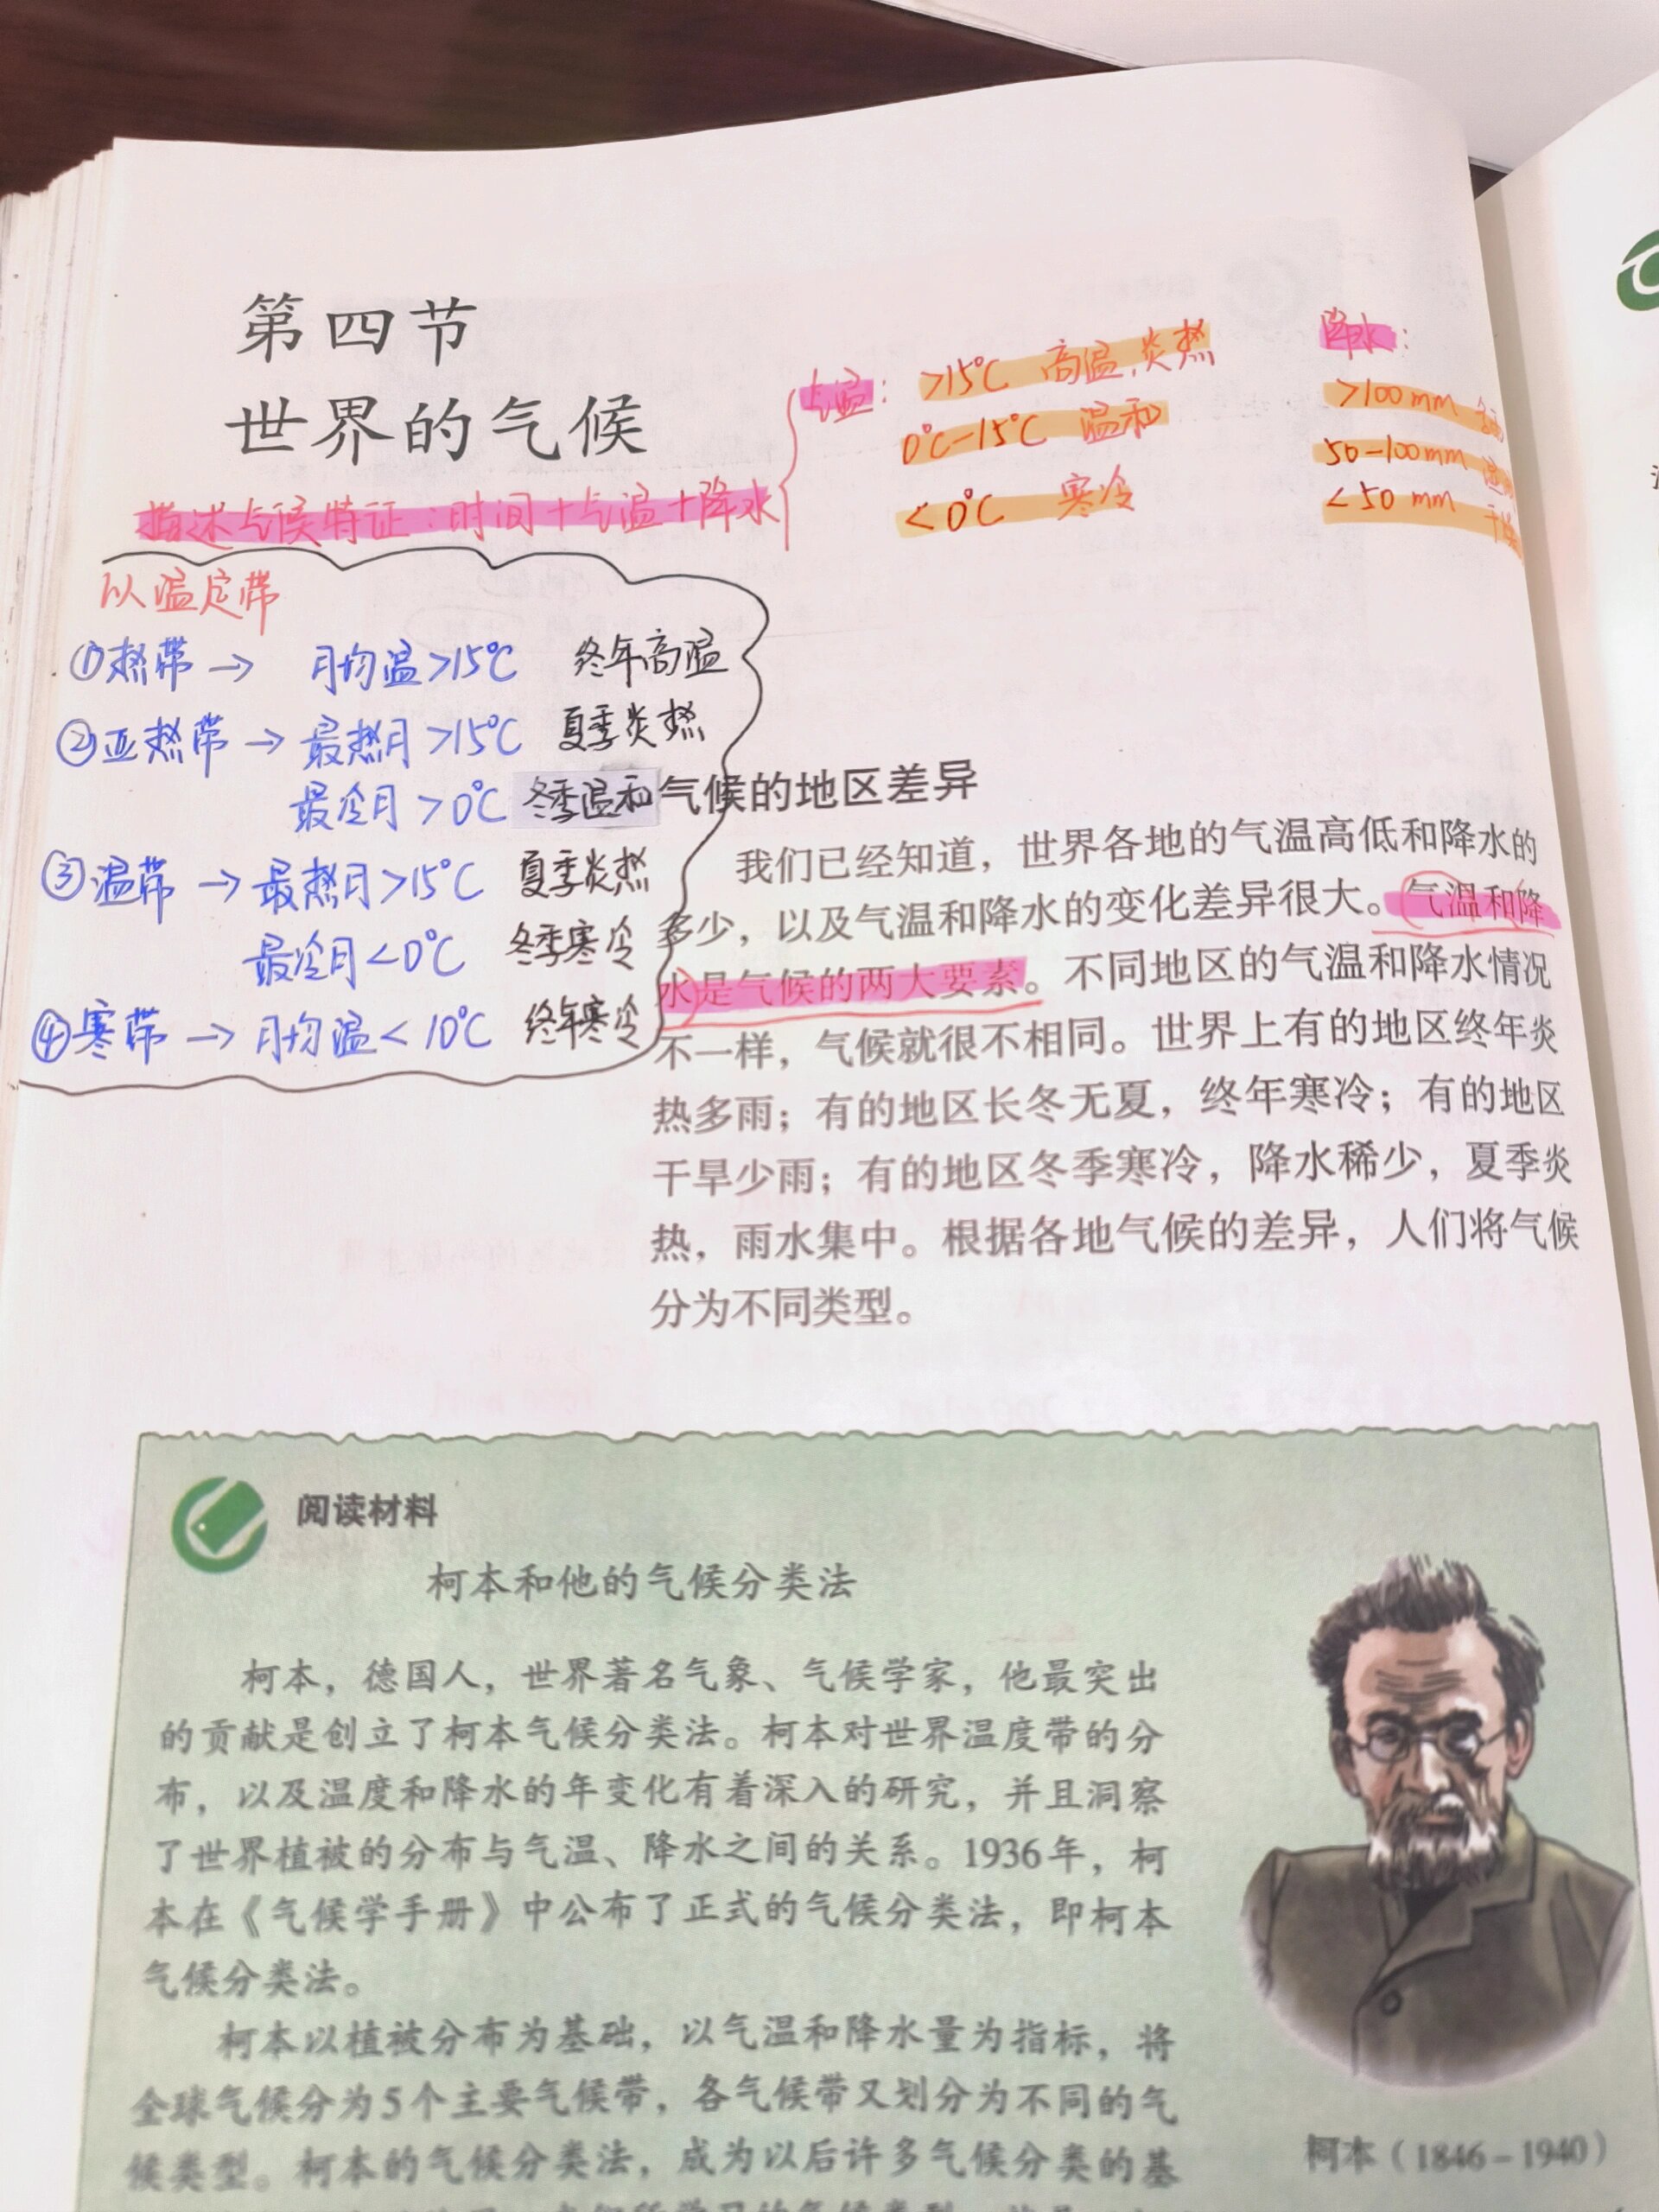 第四节
世界的气候
描述气候特征：时间+气温+降水
气温：
>15℃ 高温,炎热
0℃-15℃ 温和
<0℃ 寒冷
降水：
>100mm
50-100mm
<50 mm
以温定带
①热带→ 月均温>15℃ 终年高温
②亚热带→最热月>15℃ 夏季炎热
最冷月>0℃ 冬季温和
③温带→最热月>15℃ 夏季炎热
最冷月<0℃ 冬季寒冷
④寒带→月均温<10℃ 终年寒冷
气候的地区差异
我们已经知道，世界各地的气温高低和降水的
多少，以及气温和降水的变化差异很大。气温和降
水是气候的两大要素。不同地区的气温和降水情况
不一样，气候就很不相同。世界上有的地区终年炎
热多雨；有的地区长冬无夏，终年寒冷；有的地区
干旱少雨；有的地区冬季寒冷，降水稀少，夏季炎
热，雨水集中。根据各地气候的差异，人们将气候
分为不同类型。
阅读材料
柯本和他的气候分类法
柯本，德国人，世界著名气象、气候学家，他最突出
的贡献是创立了柯本气候分类法。柯本对世界温度带的分
布，以及温度和降水的年变化有着深入的研究，并且洞察
了世界植被的分布与气温、降水之间的关系。1936年，柯
本在《气候学手册》中公布了正式的气候分类法，即柯本
气候分类法。
柯本以植被分布为基础，以气温和降水量为指标，将
全球气候分为5个主要气候带，各气候带又划分为不同的气
候类型。柯本的气候分类法，成为以后许多气候分类的基
柯本（1846－1940）